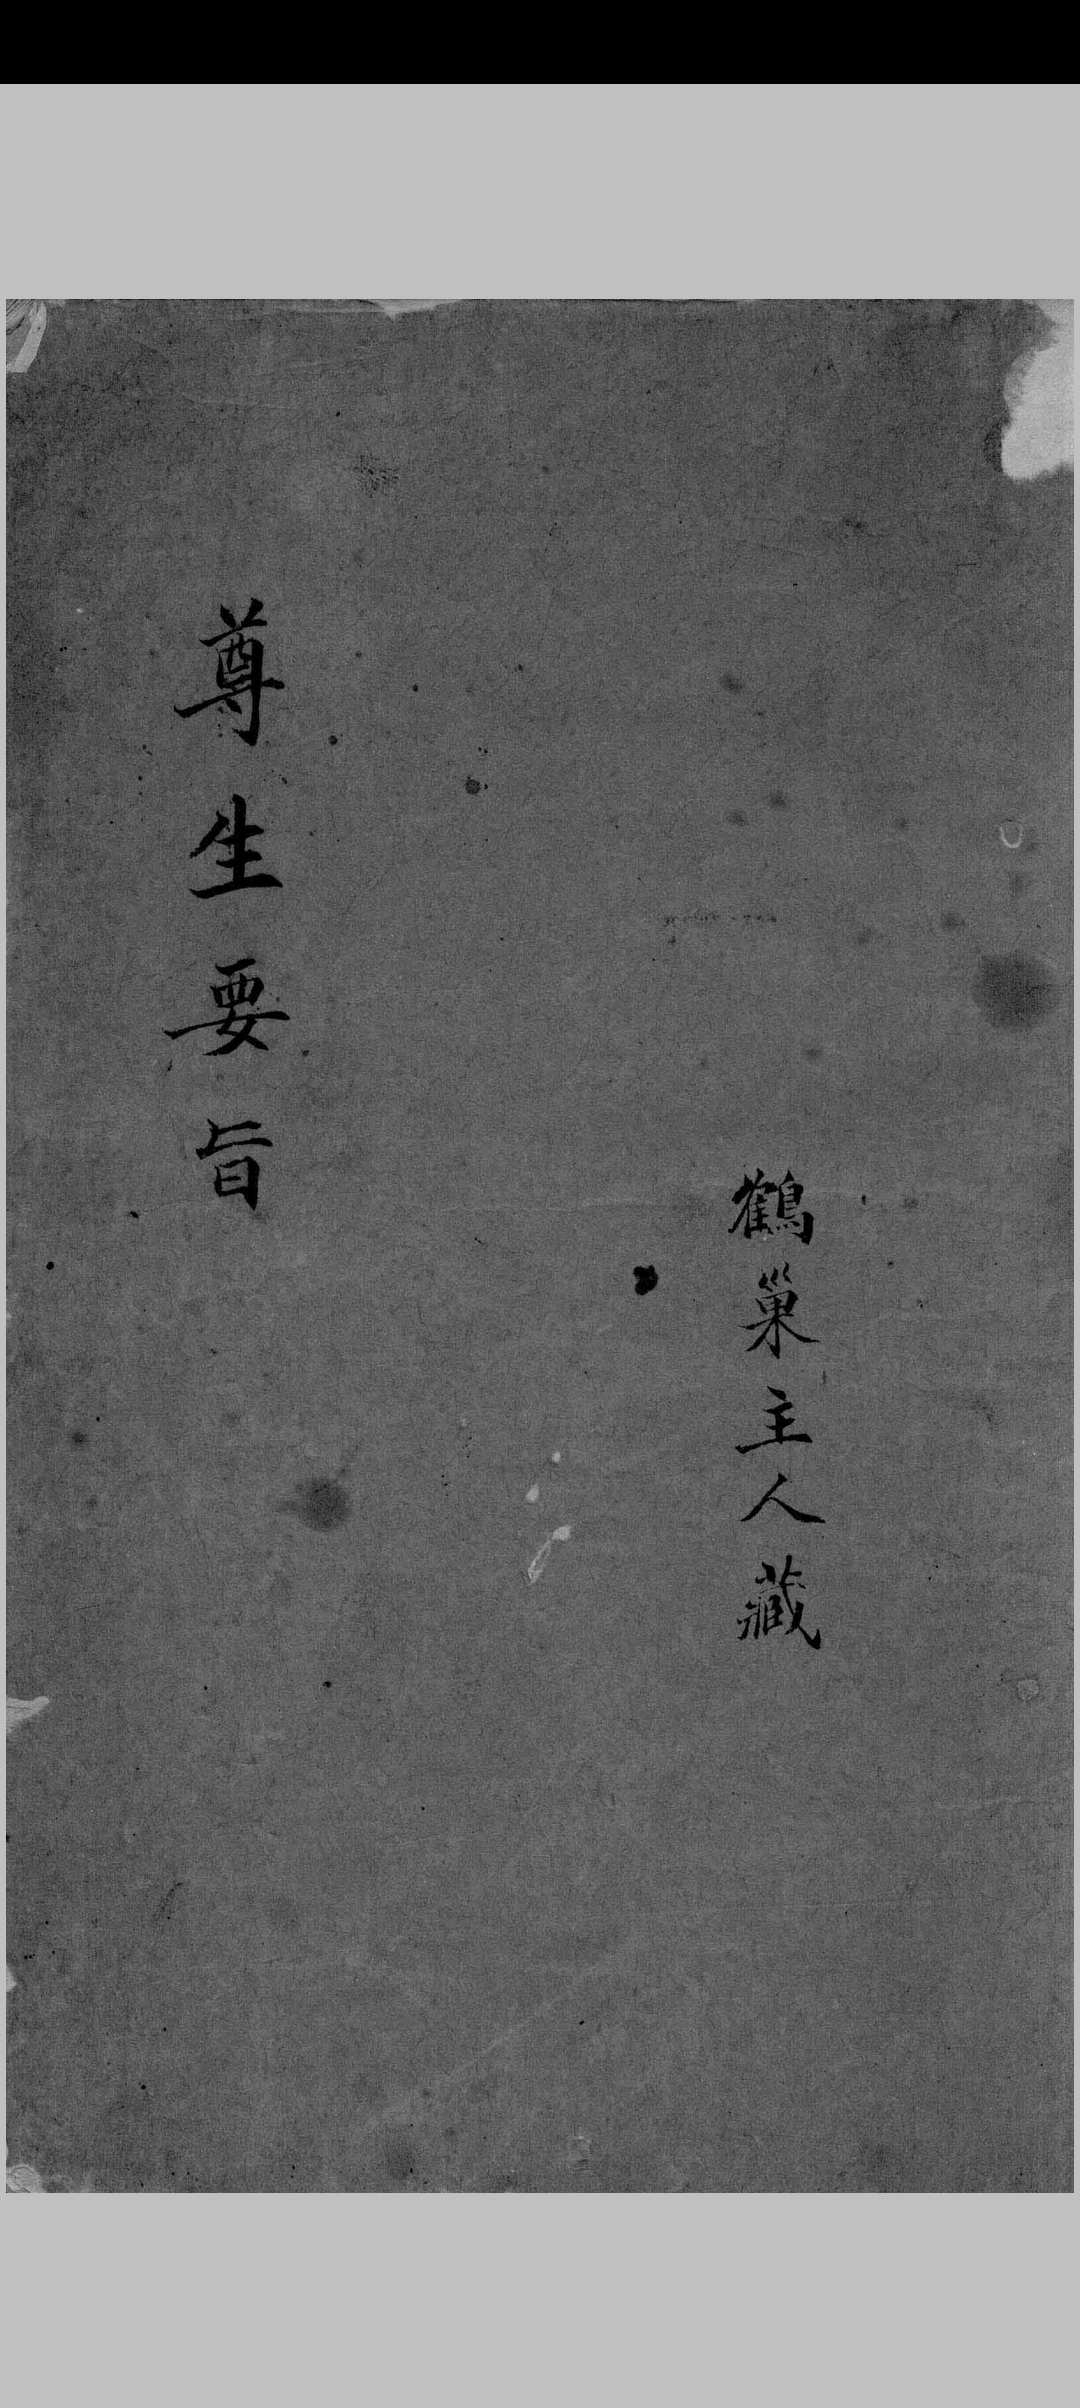 鶴巢主人藏
尊生要旨